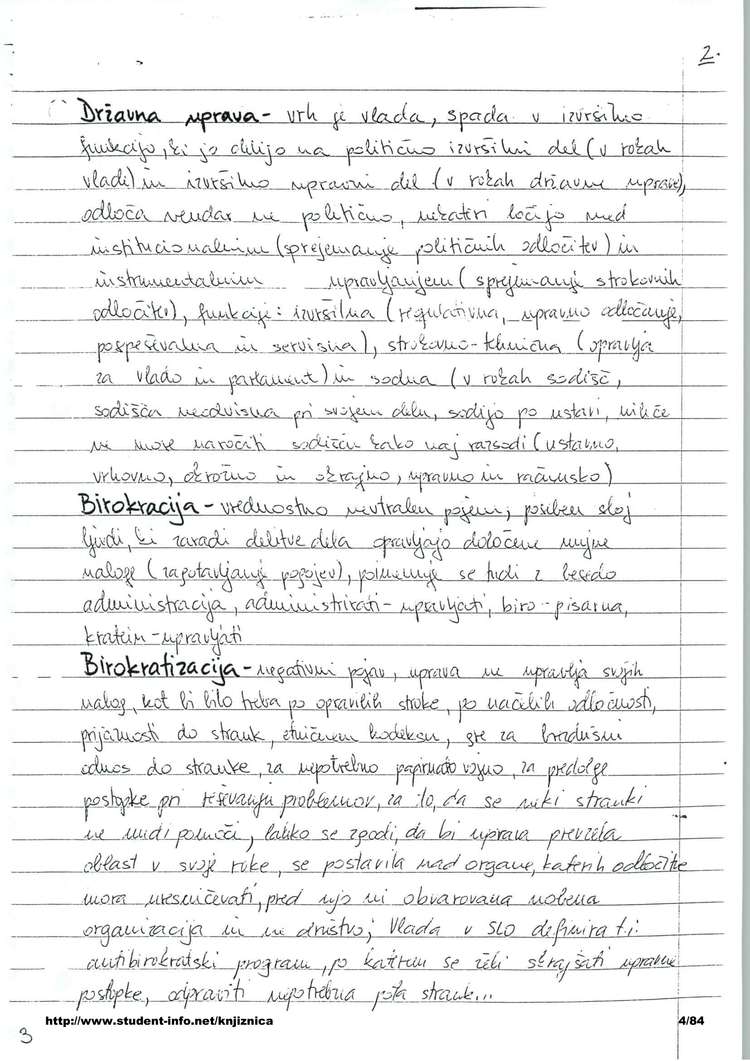 2.
Državna uprava - vrh je vlada, spada v izvršilno
funkcijo, ki jo delijo na politično izvršilni del (v rokah
vlade) in izvršilno upravni del (v rokah državne uprave),
odloča vendar ne politično, nekateri ločijo med
institucionalnim (sprejemanje političnih odločitev) in
instrumentalnim upravljanjem (sprejemanje strokovnih
odločitev), funkcije: izvršilna (regulativna, upravno odločanje,
pospeševalna in servisna), strokovno-tehnična (opravlja
za vlado in parlament) in sodna (v rokah sodišč,
sodišča neodvisna pri svojem delu, sodijo po ustavi, nihče
ne more naročiti sodišču kako naj razsodi (ustavno,
vrhovno, okrožno in okrajno, upravno in računsko)
Birokracija - vrednostno nevtralen pojem, poseben sloj
ljudi, ki zaradi delitve dela opravljajo določene nujne
naloge (zagotavljanje pogojev), poimenuje se tudi z besedo
administracija, administrirati - upravljati, biro - pisarna,
kratein - upravljati
Birokratizacija - negativni pojav, uprava ne upravlja svojih
nalog, kot bi bilo treba po opravilih stroke, po načelih odločnosti,
prijaznosti do strank, etičnem kodeksu, gre za brezdušni
odnos do stranke, za nepotrebno papirnato vojno, za predolge
postopke pri reševanju problemov, za to, da se neki stranki
ne nudi pomoči, lahko se zgodi, da bi uprava prevzela
oblast v svoje roke, se postavila nad organe, katerih odločitve
mora uresničevati, pred njo ni obvarovana nobena
organizacija in ne društvo; Vlada v SLO definira t.i.
antibirokratski program, po katerem se želi skrajšati upravne
postopke, odpraviti nepotrebna pota strank...
http://www.student-info.net/knjiznica 4/84
3